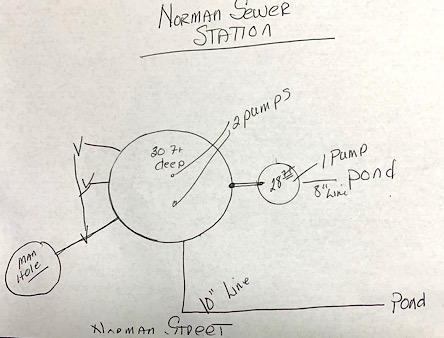 NORMAN SEWER
STATION
2 pumps
30 Ft
deep
1 Pump
28 Ft
8" Line
Pond
MAN
HOLE
10" Line
Pond
NORMAN STREET